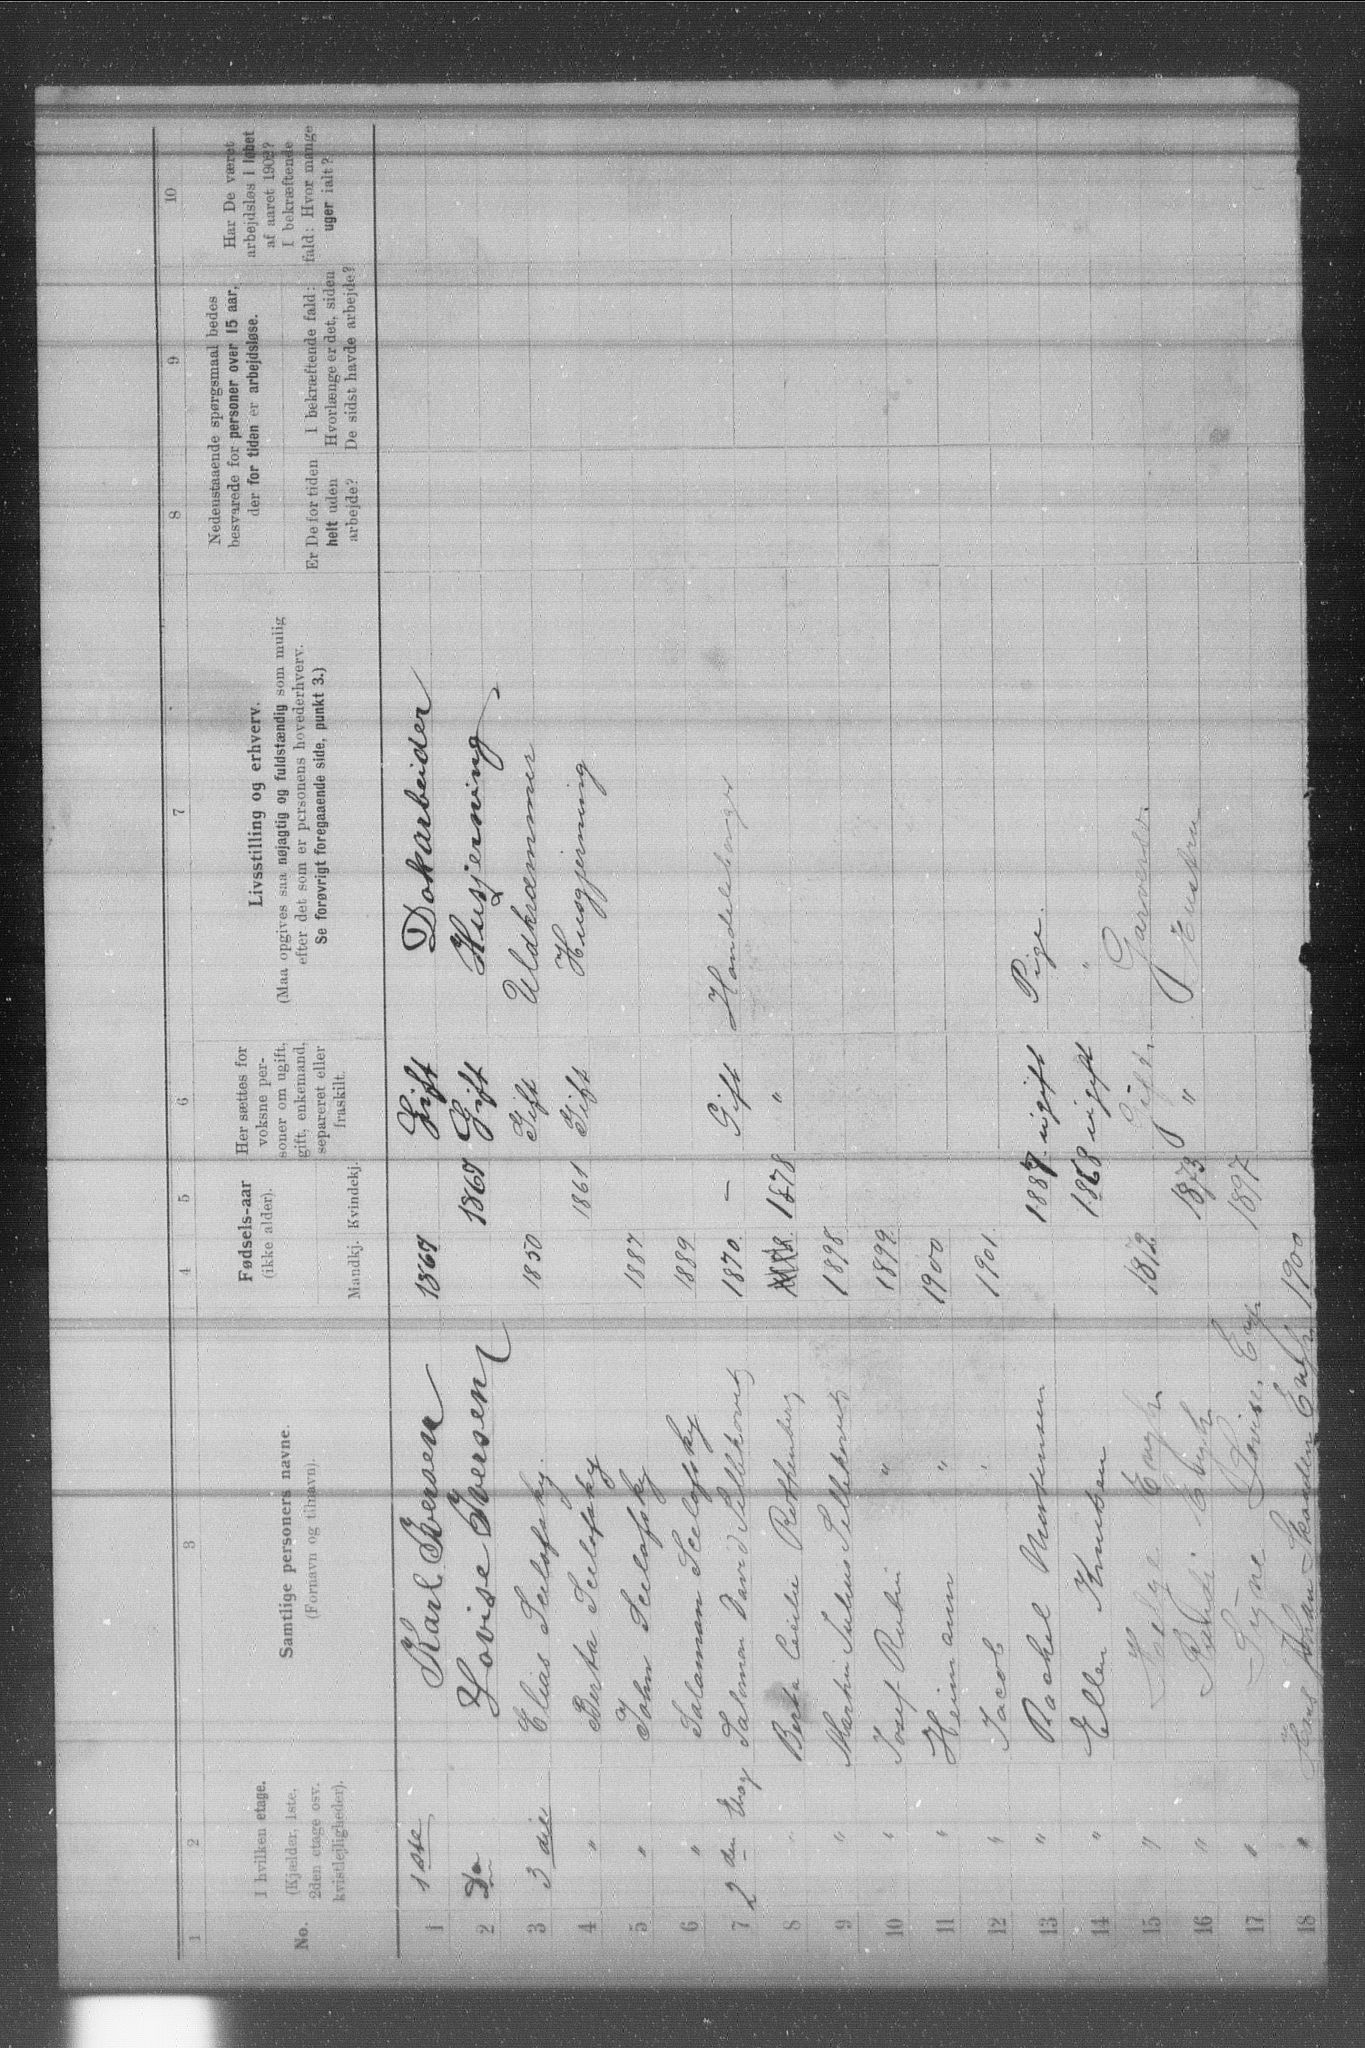 1 2 3 4 5 6 7 8 9 10
No.
I hvilken etage.
(Kjælder, 1ste,
2den etage osv.
kvistlejligheder).
Samtlige personers navne.
(Fornavn og tilnavn).
Fødsels-aar
(ikke alder).
Mandkj. Kvindekj.
Her sættes for
voksne per-
soner om ugift,
gift, enkemand,
separeret eller
fraskilt.
Livsstilling og erhverv.
(Maa opgives saa nøjagtig og fuldstændig som mulig
efter det som er personens hovederhverv.
Se forøvrigt foregaaende side, punkt 3.)
Nedenstaaende spørgsmaal bedes
besvarede for personer over 15 aar,
der for tiden er arbejdsløse.
Er De for tiden
helt uden
arbejde?
I bekræftende fald:
Hvorlænge er det, siden
De sidst havde arbejde?
Har De været
arbejdsløs i løbet
af aaret 1902?
I bekræftende
fald: Hvor mange
uger ialt?
1 1ste Karl Iversen 1867 Gift Dokarbeider
2 Do Lovise Iversen 1867 Gift Husjerning
3 3die Elias Seelofsky. 1850 Gift Uldkræmmer
4 " Berta Seelofsky 1861 Gift Husgjerning
5 " John Seelofsky 1887
6 " Salamon Seelofsky 1889
7 2den Etag Salomon David 1870. — Gift
8 " Berta Cecilie Rothenberg 1878 "
9 " Martin Julius 1898.
10 " Josef Rubin " 1899
11 " Heimann " 1900
12 " Jacob " 1901.
13 " Rachel 1887. ugift Pige.
14 " Ellen Knutsen 1868 ugift "
15 " Helge Engh 1872 Gift
16 " Engh 1873 " Hustru
17 " Signe Lovise Engh 1897
18 " Hans Johan Engh 1900